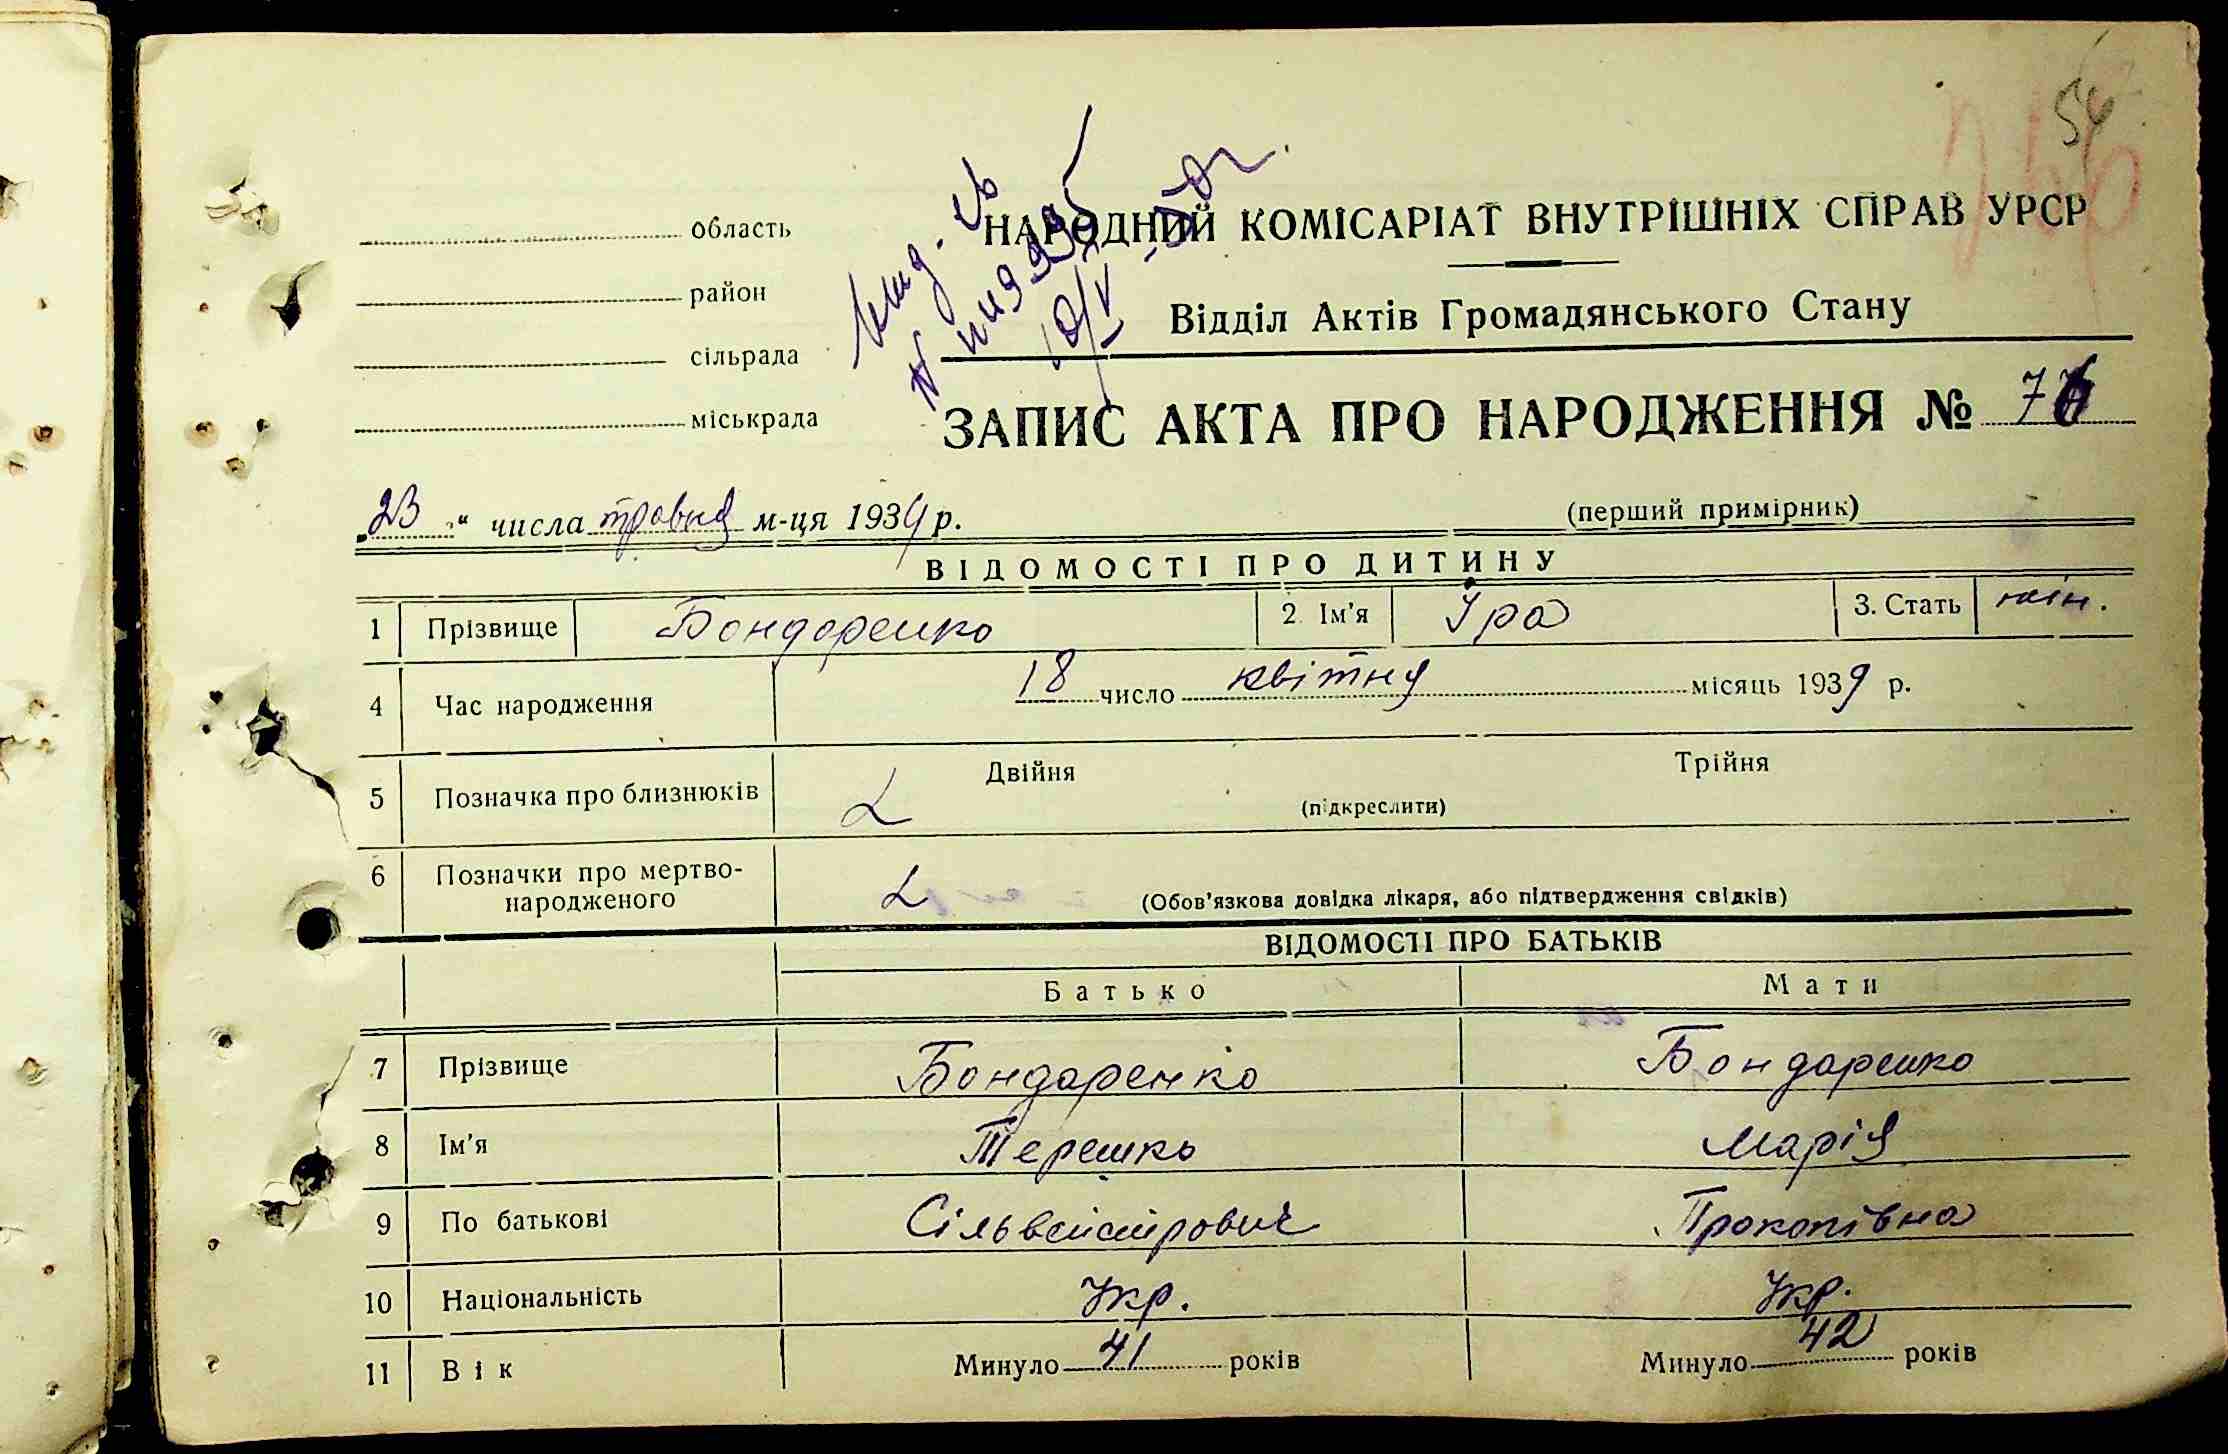 54
область
НАРОДНИЙ КОМІСАРІАТ ВНУТРІШНІХ СПРАВ УРСР
район
Відділ Актів Громадянського Стану
сільрада
міськрада
ЗАПИС АКТА ПРО НАРОДЖЕННЯ № 76
„23“ числа травня м-ця 1939 р.
(перший примірник)
ВІДОМОСТІ ПРО ДИТИНУ
1 Прізвище Бондаренко 2. Ім'я Іра 3. Стать жін.
4 Час народження 18 число квітня місяць 1939 р.
5 Позначка про близнюків Двійня (підкреслити) Трійня
6 Позначки про мертво-
народженого (Обов'язкова довідка лікаря, або підтвердження свідків)
ВІДОМОСТІ ПРО БАТЬКІВ
Батько Мати
7 Прізвище Бондаренко Бондаренко
8 Ім'я Терешко Марія
9 По батькові Сільвестрович Прокопівна
10 Національність Укр. Укр.
11 Вік Минуло 41 років Минуло 42 років